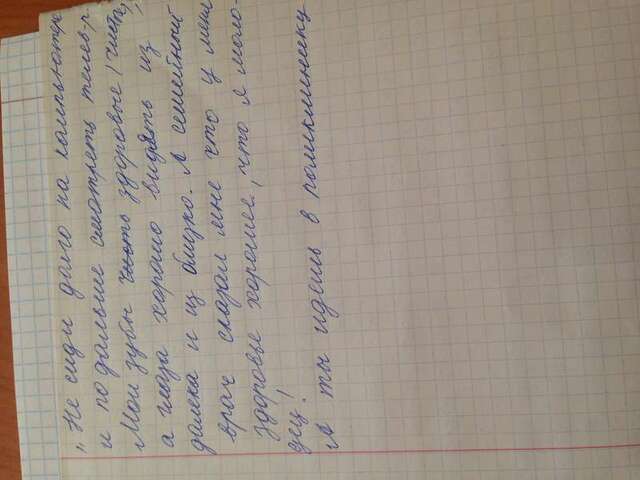 „Не сиди долго на компьютере
и по дальше смотреть телев-р
Мои зубы здоровые, чисты,
а глаза хорошо видять из
далека и из близко. А семейный
врач сказал мне что у меня
здоровье хорошее, что я моло-
дец!
А ты идешь в поликлинику